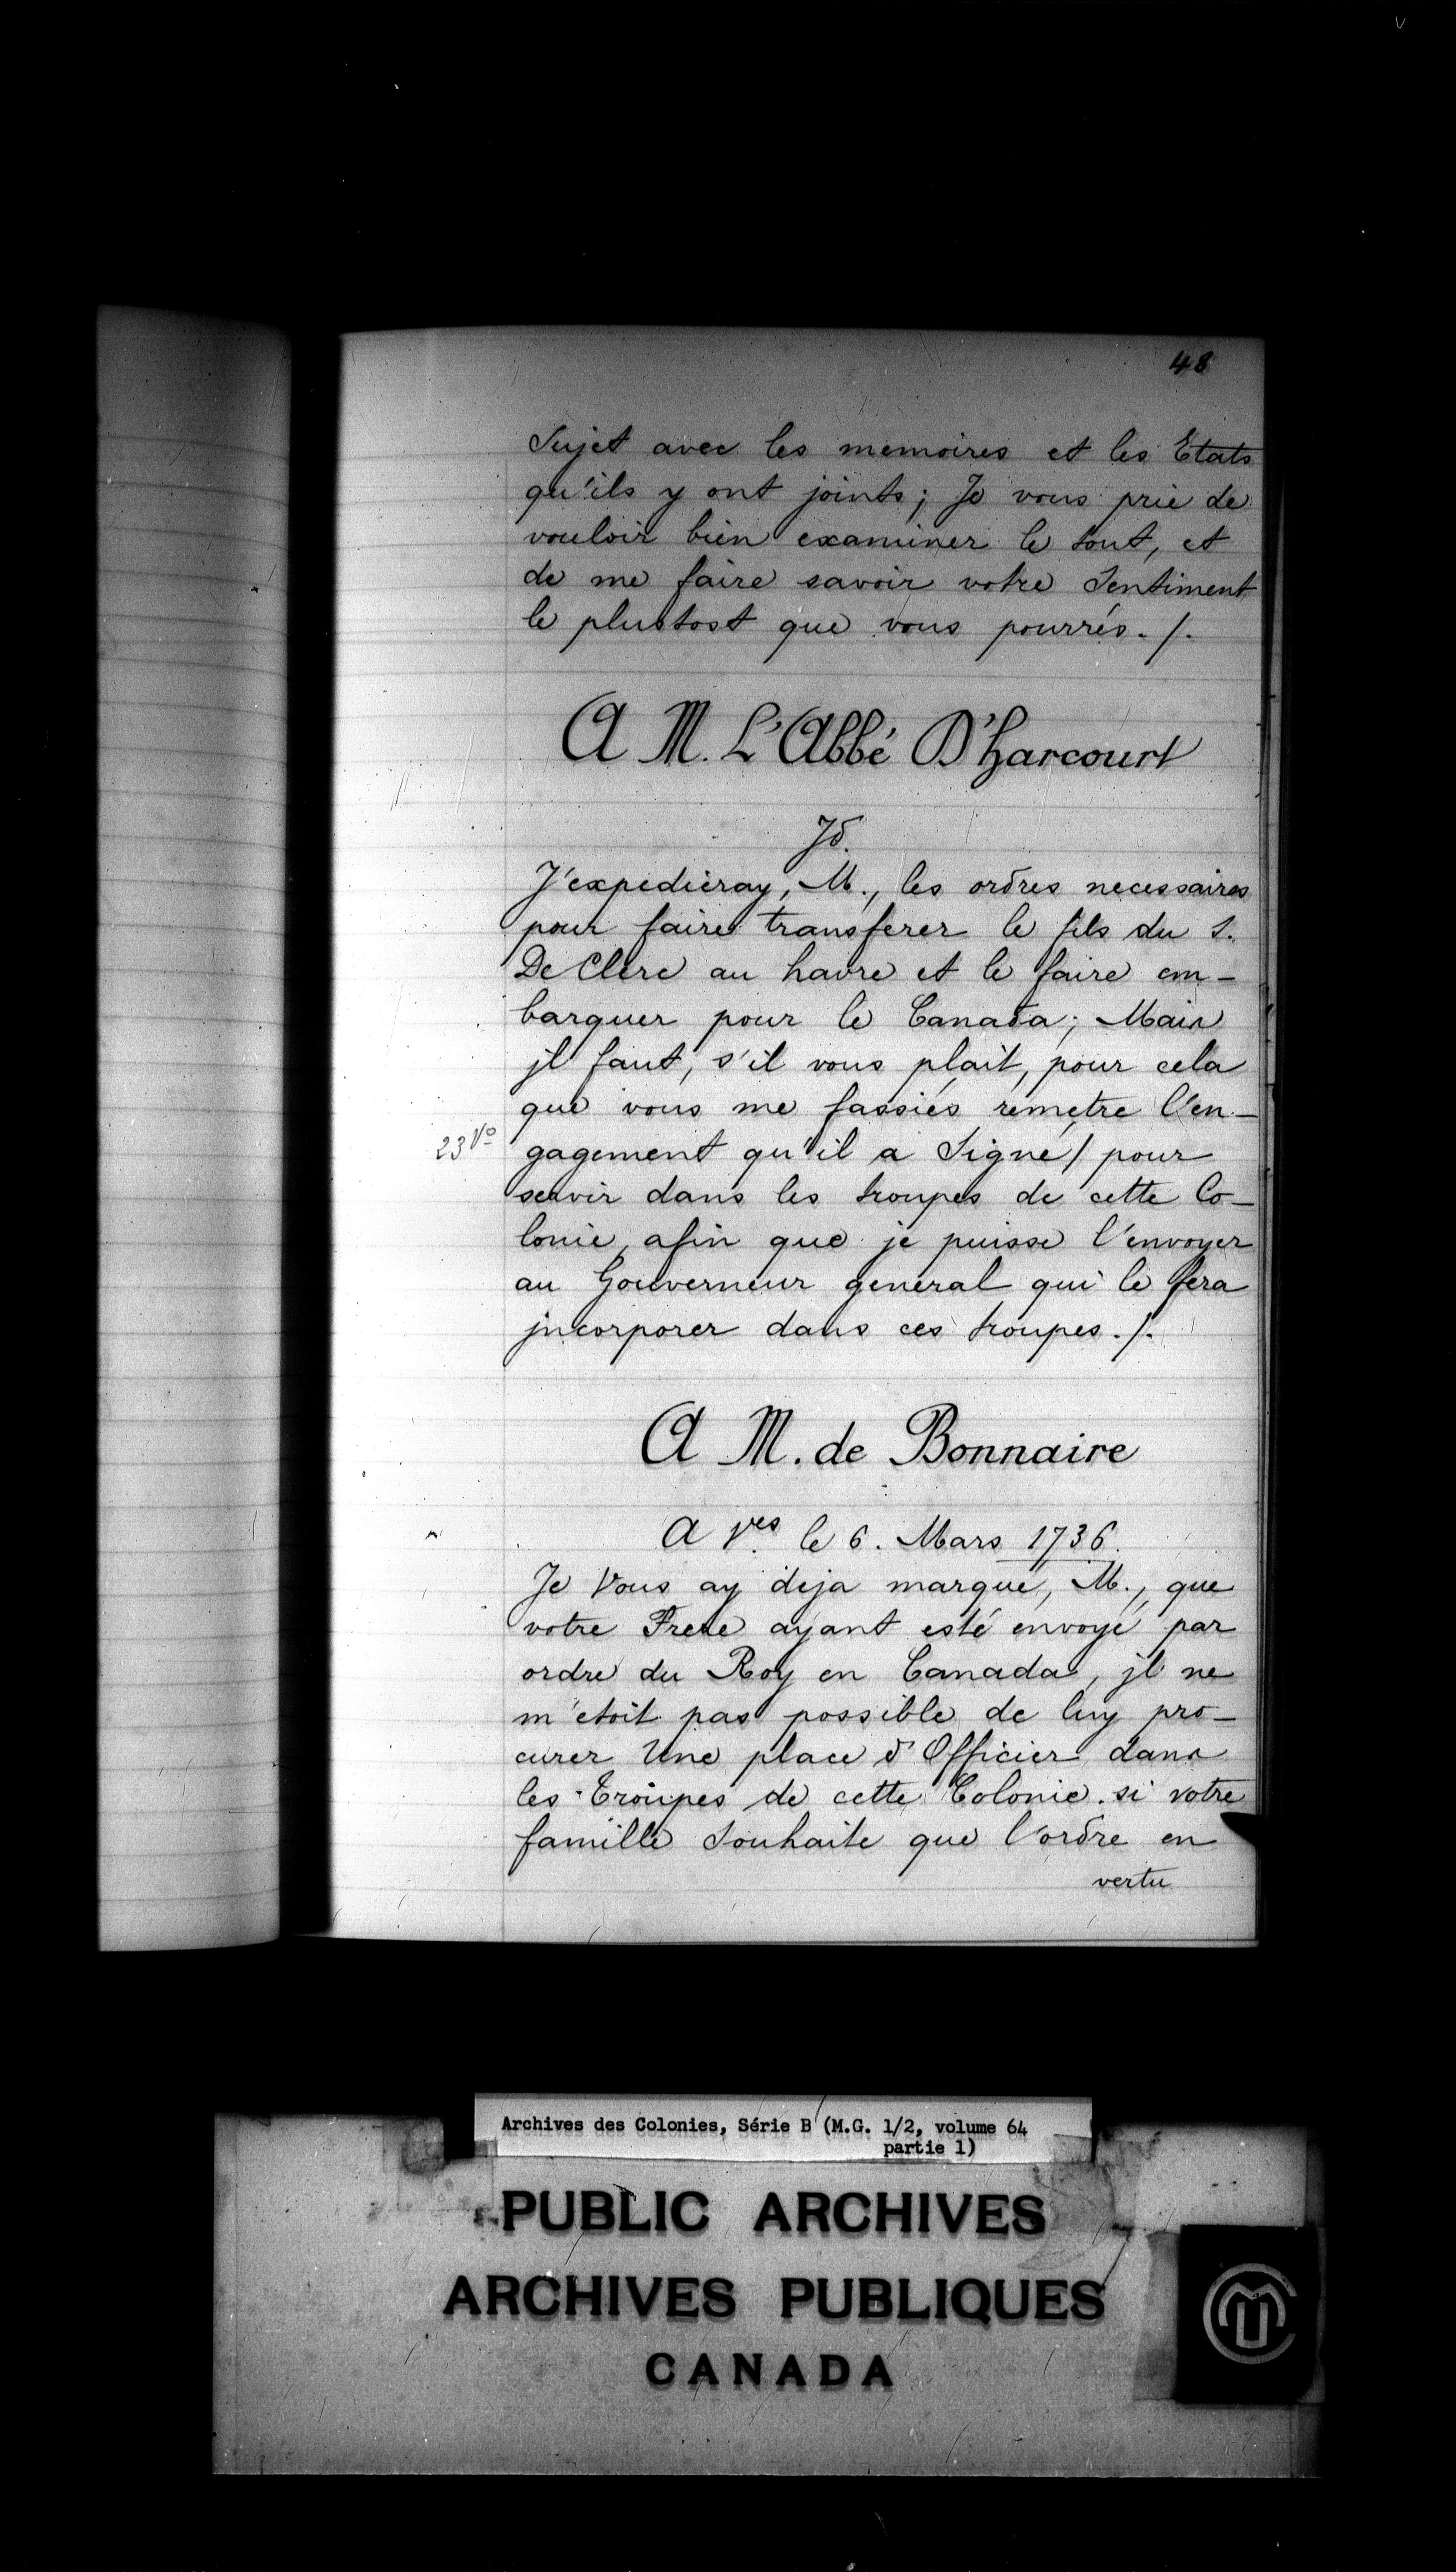 48
Sujet avec les memoires et les Etats
qu'ils y ont joints; Je vous prie de
vouloir bien examiner le tout, et
de me faire savoir votre Sentiment
le plustost que vous pourrés. /.
A M. L'Abbé D'harcourt
Jd.
J'expedieray, M., les ordres necessaires
pour faire transferer le fils du S.
De Clere au havre et le faire em-
barquer pour le Canada; Mais
jl faut, s'il vous plait, pour cela
que vous me fassiés remetre l'en-
23 Vº
gagement qu'il a Signé/ pour
servir dans les troupes de cette Co-
lonie, afin que je puisse l'envoyer
au Gouverneur general qui le fera
jncorporer dans ces troupes. /.
A M. de Bonnaire
A Ves le 6. Mars 1736.
Je Vous ay deja marqué, M., que
votre Frere ayant esté envoyé par
ordre du Roy en Canada, jl ne
m'etoit pas possible de luy pro-
curer Une place d'Officier dans
les Troupes de cette Colonie. si votre
famille Souhaite que l'ordre en
vertu
Archives des Colonies, Série B (M.G. 1/2, volume 64
partie 1)
PUBLIC ARCHIVES
ARCHIVES PUBLIQUES
CANADA